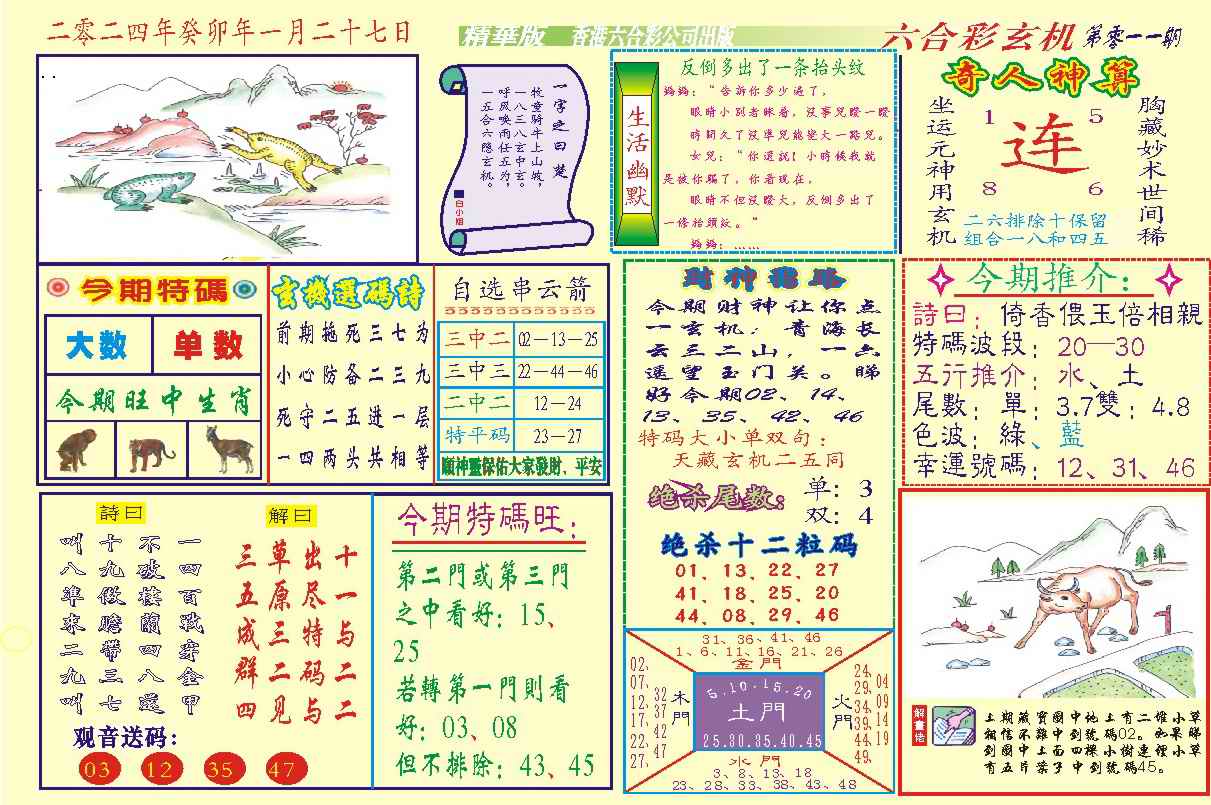 二零二四年癸卯年一月二十七日
精華版 香港六合彩公司出版
六合彩玄机 第零一一期
一字之曰：楚
牧童骑牛上山坡，
一八三八玄中玄。
呼风唤雨任五为，
一五合六隐玄机。
白小姐
生活幽默
反倒多出了一条抬头纹
眼時小别老眯着，沒事兒瞪一瞪
時間久了没準兒能變大一路兒。
女兒：“你還説！小時候我就
是被你騙了，你看現在，
眼時不但沒瞪大，反倒多出了
一條抬頭紋。”
奇人神算
坐运元神用玄机
胸藏妙术世间稀
1 5
连
8 6
二六排除十保留
组合一八和四五
今期特碼
大数 单数
今期旺中生肖
玄機選碼詩
前期拖死三七为
小心防备二三九
死守二五进一层
一四两头共相等
自选串云箭
三中二 02—13—25
三中三 22—44—46
二中二 12—24
特平码 23—27
願神靈保佑大家發財、平安
財神指路
今期财神让你点
一玄机：青海长
云三二山，一六
遥望玉门关。睇
好今期02、14、
13、35、42、46
特码大小单双句：
天藏玄机二五同
绝杀尾数：
单：3
双：4
绝杀十二粒码
01、13、22、27
41、18、25、20
44、08、29、46
今期推介：
詩曰：倚香偎玉倍相親
特碼波段：20—30
五行推介：水、土
尾數：單：3.7雙：4.8
色波：綠、藍
幸運號碼：12、31、46
詩曰
一四百戰穿金甲
不破樓蘭四八還
十九做膽帶三七
叫八準來二九叫
解曰
十一与二二
出尽特码与
草原三二见
三五成群四
观音送码：
03 12 35 47
今期特碼旺：
第二門或第三門
之中看好：15、
25
若轉第一門則看
好：03、08
但不排除：43、45
31、36、41、46
1、6、11、16、21、26
金門
02、07、12、17、22、27、
32 37 42 47
木門
5.10.15.20
土門
25.30.35.40.45
火門
24、29、34、39、44、49、
04 09 14 19
水門
3、8、13、18
23、28、33、38、43、48
解畫佬
上期藏寶圖中地上有二堆小草
相信不難中到號碼02。如果睇
到圖中上面四棵小樹連徑小草
有五片葉子中到號碼45。